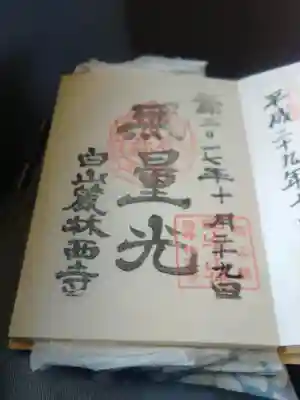 二〇一七年十月二十九日
無量光
白山麓林西寺
平成二十九年